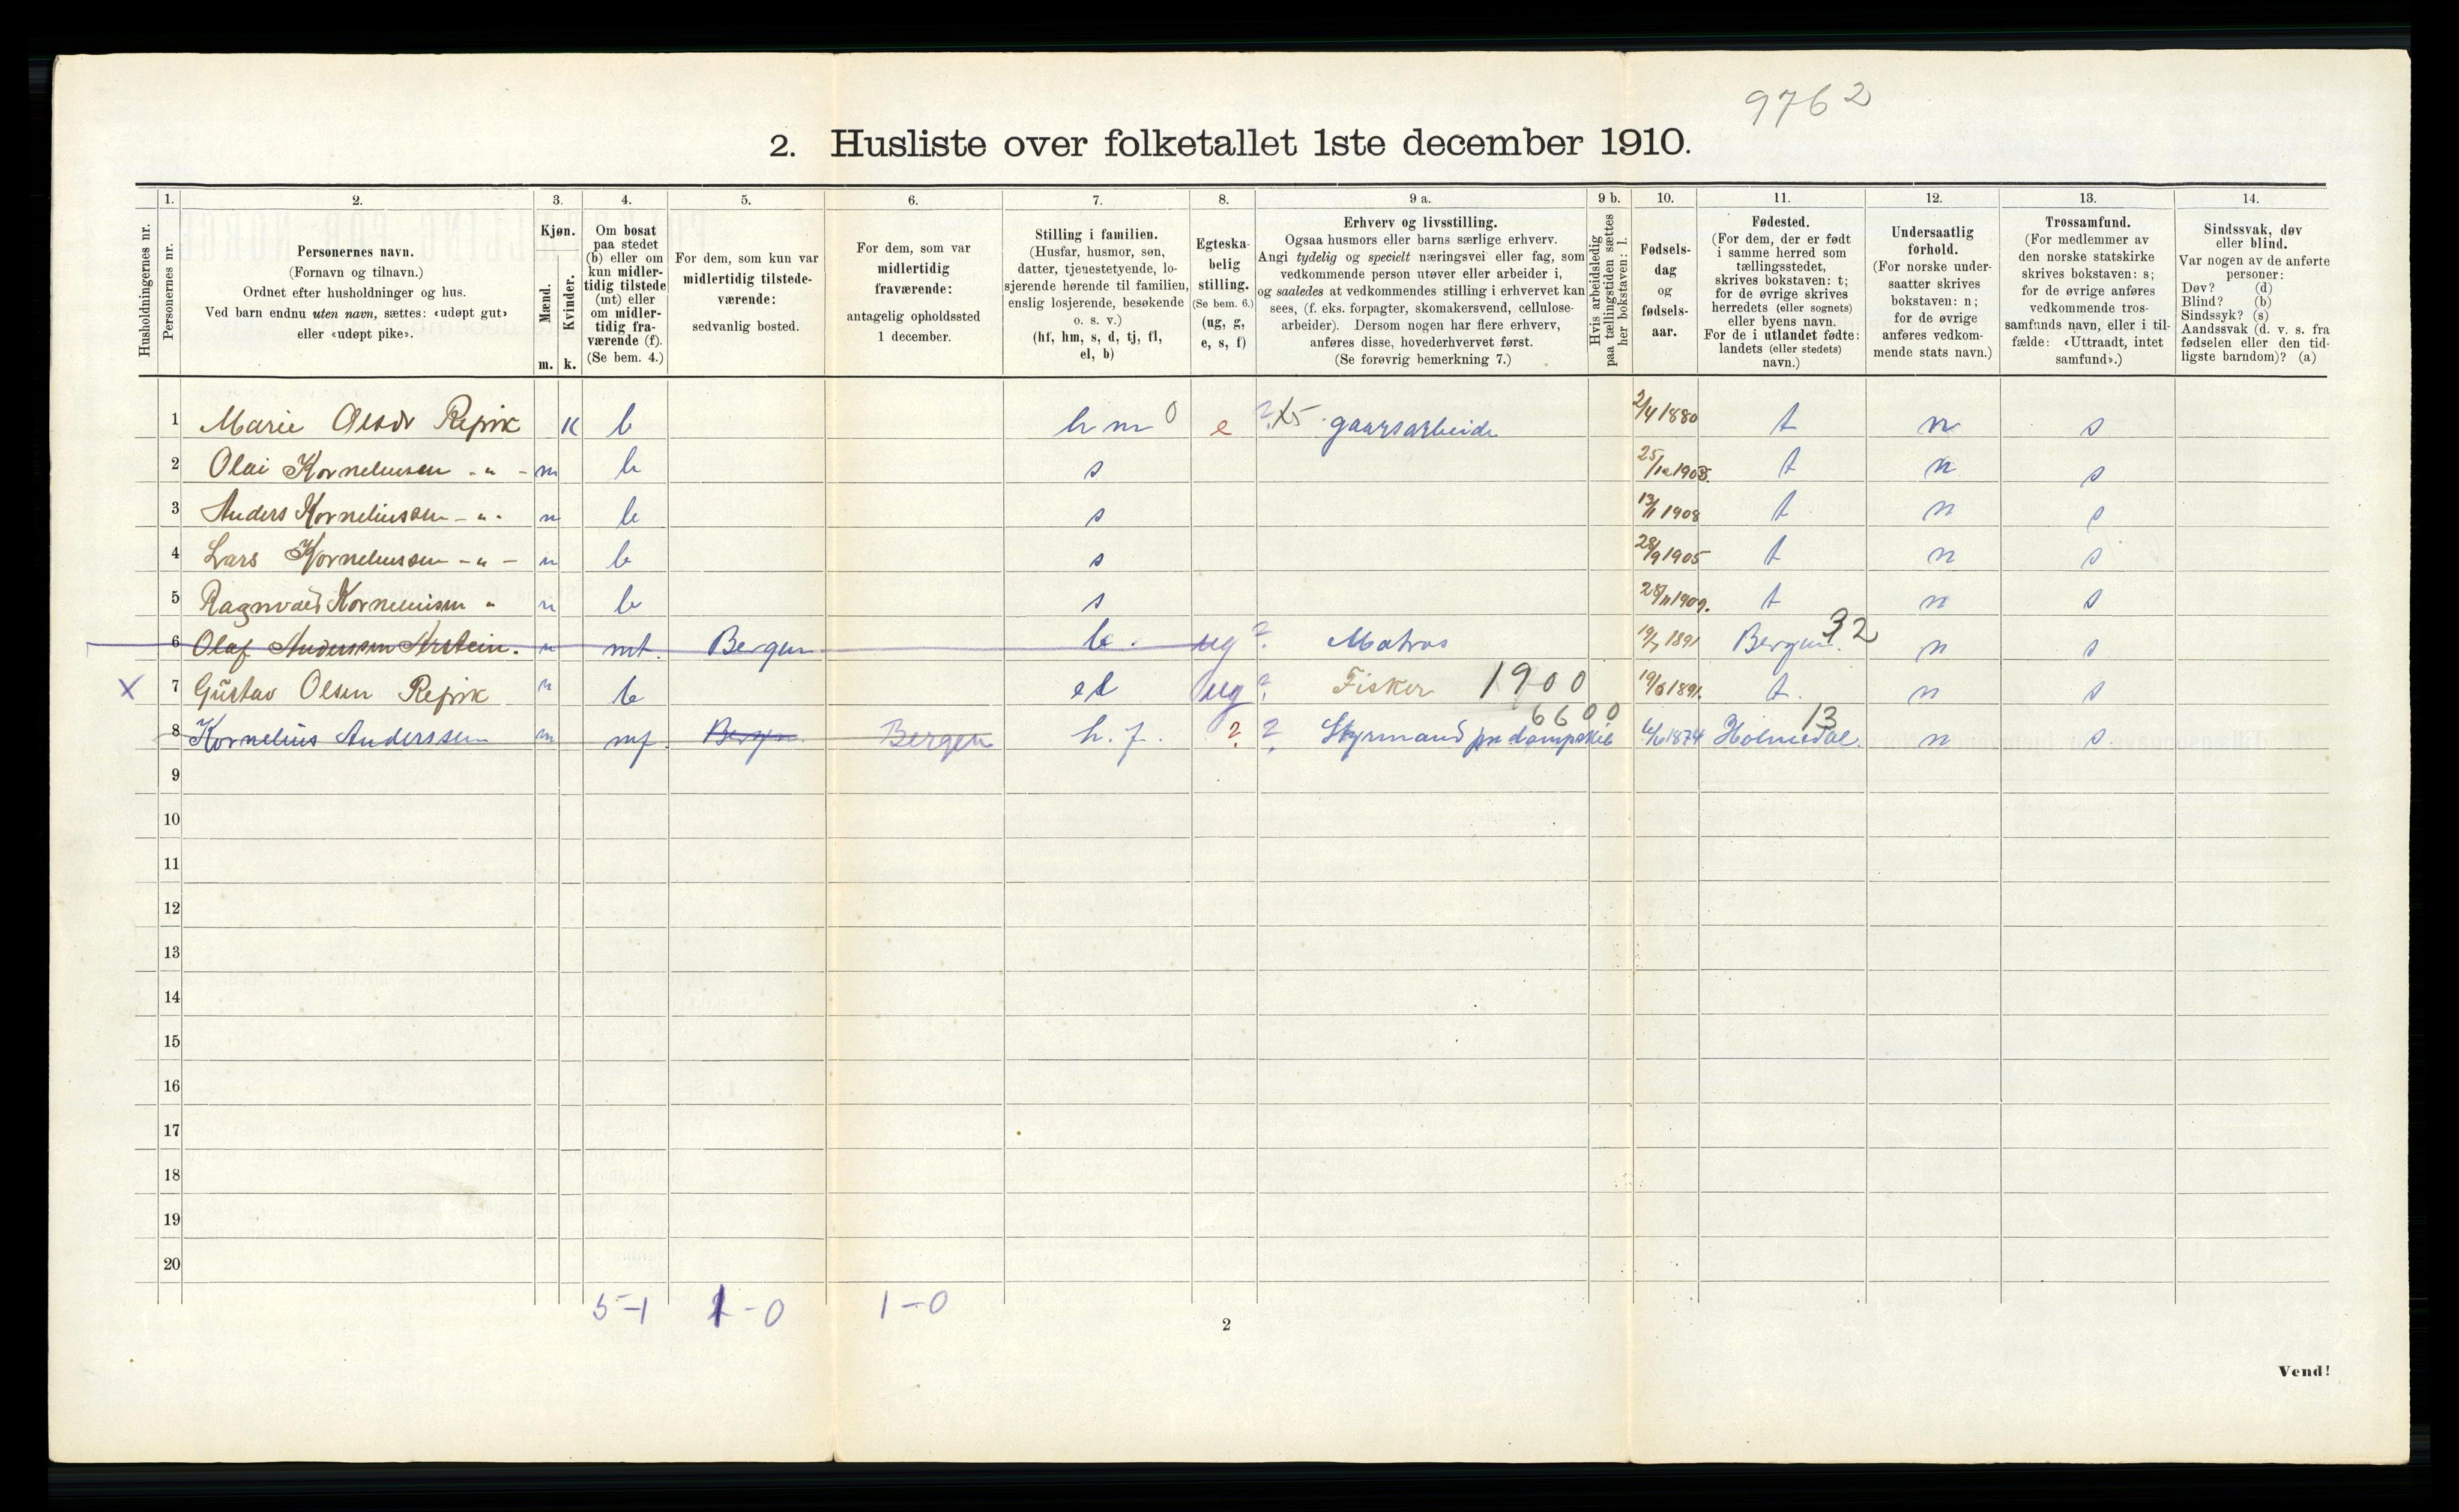 9762
2. Husliste over folketallet 1ste december 1910.
Husholdningernes nr.
1.
Personernes nr.
2.
Personernes navn.
(Fornavn og tilnavn.)
Ordnet efter husholdninger og hus.
Ved barn endnu uten navn, sættes: «udøpt gut»
eller «udøpt pike».
3.
Kjøn.
Mænd.
Kvinder.
m. k.
4.
Om bosat
paa stedet
(b) eller om
kun midler-
tidig tilstede
(mt) eller
om midler-
tidig fra-
værende (f).
(Se bem. 4.)
5.
For dem, som kun var
midlertidig tilstede-
værende:
sedvanlig bosted.
6.
For dem, som var
midlertidig
fraværende:
antagelig opholdssted
1 december.
7.
Stilling i familien.
(Husfar, husmor, søn,
datter, tjenestetyende, lo-
sjerende hørende til familien,
enslig losjerende, besøkende
o. s. v.)
(hf, hm, s, d, tj, fl,
el, b)
8.
Egteska-
belig
stilling.
(Se bem. 6.)
(ug, g,
e, s, f)
9 a.
Erhverv og livsstilling.
Ogsaa husmors eller barns særlige erhverv.
Angi tydelig og specielt næringsvei eller fag, som
vedkommende person utøver eller arbeider i,
og saaledes at vedkommendes stilling i erhvervet kan
sees, (f. eks. forpagter, skomakersvend, cellulose-
arbeider). Dersom nogen har flere erhverv,
anføres disse, hovederhvervet først.
(Se forøvrig bemerkning 7.)
9 b.
Hvis arbeidsledig
paa tællingstiden sættes
her bokstaven: l.
10.
Fødsels-
dag
og
fødsels-
aar.
11.
Fødested.
(For dem, der er født
i samme herred som
tællingsstedet,
skrives bokstaven: t;
for de øvrige skrives
herredets (eller sognets)
eller byens navn.
For de i utlandet fødte:
landets (eller stedets)
navn.)
12.
Undersaatlig
forhold.
(For norske under-
saatter skrives
bokstaven: n;
for de øvrige
anføres vedkom-
mende stats navn.)
13.
Trossamfund.
(For medlemmer av
den norske statskirke
skrives bokstaven: s;
for de øvrige anføres
vedkommende tros-
samfunds navn, eller i til-
fælde: «Uttraadt, intet
samfund».)
14.
Sindssvak, døv
eller blind.
Var nogen av de anførte
personer:
Døv? (d)
Blind? (b)
Sindssyk? (s)
Aandssvak (d. v. s. fra
fødselen eller den tid-
ligste barndom)? (a)
1 Marie Olsdr Repvik K b hm 0 e ? x5 gaarsarbeide 2/4 1880 t n s
2 Olai Korneliussen - " - m b s t n s
3 Anders Korneliussen - " - m b s 1908 t n s
4 Lars Korneliussen - " - m b s 28/9 1905 t n s
5 Ragnvald Korneliusen " m b s 28/11 1909. t n s
6 Olaf Anderssen Arstein. m mt. Bergen b. ug ? Matros 1891 Bergen. 32 n s
X 7 Gustav Olsen Repvik m b el ug ? Fisker 1900 1891. t. n s
8 Kornelius Anderssen m mf. Bergen Bergen h. f. ? ? Styrmand paa dampskib 6600 1874 Holmedal. 13 n s
9
10
11
12
13
14
15
16
17
18
19
20
5-1 1-0 1-0
2
Vend!